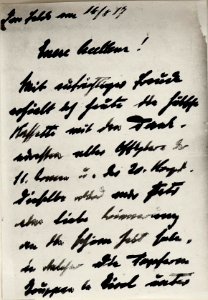 Im Felde am 16/4 17
Euere Exzellenz!
Mit aufrichtiger Freude
erhielt ich heute die hübsche
Kassette mit den Dank-
adressen aller Offiziere der
11. Armee u. des 20. Korps.
Dieselbe wird mir stets
eine liebe Erinnerung
an die schöne Zeit sein,
in welcher die tapferen
Truppen in Tirol unter